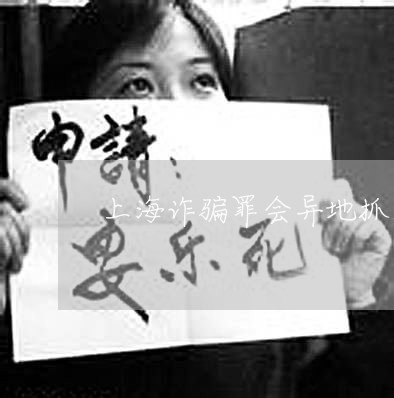 申請：
上海诈骗罪会异地抓
乐死